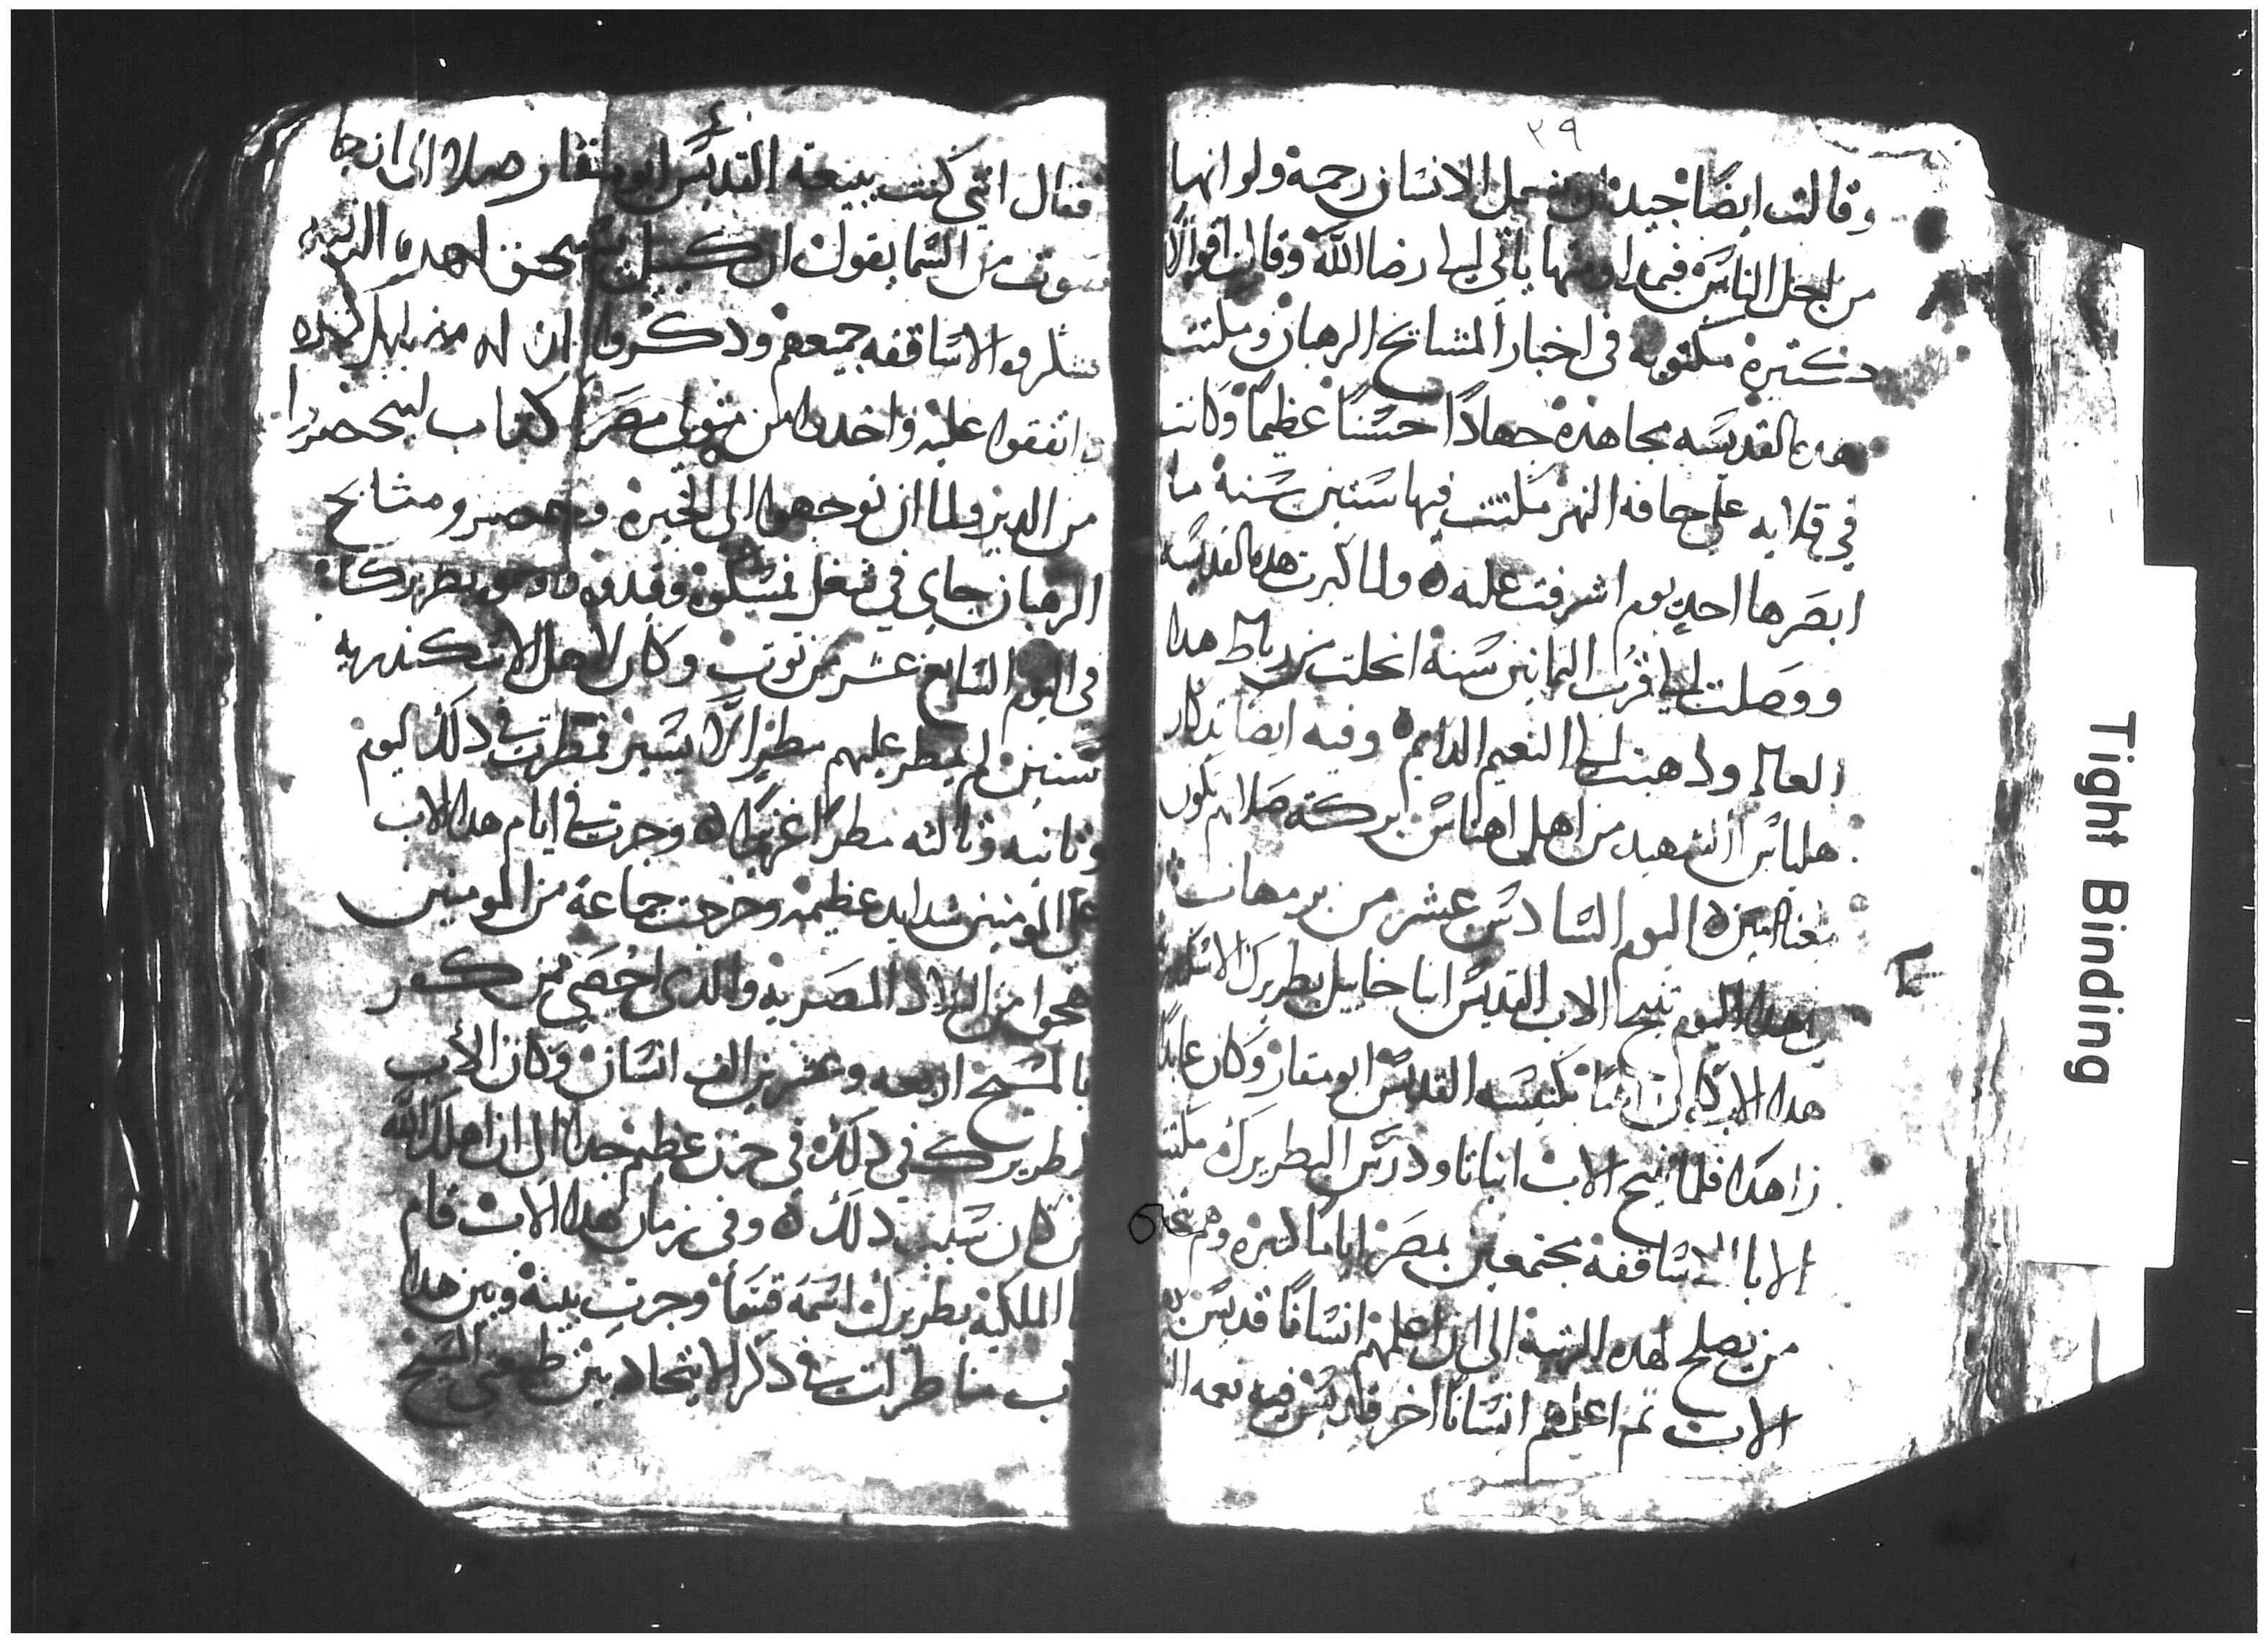 ٣٩
وقالت ايضًا جيد ان يعمل الانسان رحمة ولو انها
من اجل الناس فبمداومتها ياتي الي رضا الله وقالت اقوالًا
كثيرة مكتوبه في اخبار المشايخ الرهبان ومكثت
هده القديسه مجاهدة جهادًا حسنًا عظيمًا وكانت
في قلايه علي حافه النهر مكثت فيها ستين سنة ما
ابصرها احد يوم اشرفت عليه ولما كبرت هده القديسه
ووصلت الي قرب الثمانين سنة انحلت من رباط هدا
العالم ودهبت الي النعيم الدايم وفيه ايضا تدكار
هلياس الشهيد من اهل اهناس بركة صلاتهم تكون
معنا امين اليوم السادس عشر من برمهات
في هدا اليوم تنيح الاب القديس انبا خاييل بطريرك
هدا الاب كان راهبًا بكنيسه القديس ابو مقار وكان عابدًا
زاهدًا فلما تنيح الاب انبا تاودرس البطريرك مكثت
الابا الاساقفه مجتمعين بمصر ايامًا كثيره وهم
من يصلح لهده الرتبه الي ان اعلمهم انسانًا قديس
الاب ثم اعلمهم انسانًا اخر قديس فيه نعمه
فقال انني كنت ببيعة القديس ابو مقار صلاة الي ان جا
صوت من السما يقول ان خاييل يستحق لهده الرتبه
فشكروا الاساقفه جميعهم ودكروا ان له منه
واتفقوا عليه واخدوا من متولي مصر كتاب ليحضروا
من الدير ولما ان توجهوا الي الجيزة وجد قسوس ومشايخ
الرهبان جاي في شغل فمسكوه وقيدوه واوسموه بطريركًا
في اليوم السابع عشر من توت وكان لاهل الاسكندريه
سنتين لم يمطر عليهم مطرًا الا يسير فمطرت في دلك اليوم
وثانيه وثالثه مطرًا غزيرًا وجرت في ايام هدا الاب
علي المومنين شدايد عظيمة وخرجت جماعة من المومنين
هجوا من البلاد المصريه والدي احصي من كفر
بالمسيح اربعه وعشرين الف انسان وكان الاب
البطريرك في دلك في حزن عظيم جدًا الي ان اهلك الله
من كان سبب دلك وفي زمان هدا الاب قام
الملكية بطريرك اسمه قسما وجرت بينه وبين هدا
الاب مناظرات في دكر الاتحاد بين طبيعتي المسيح